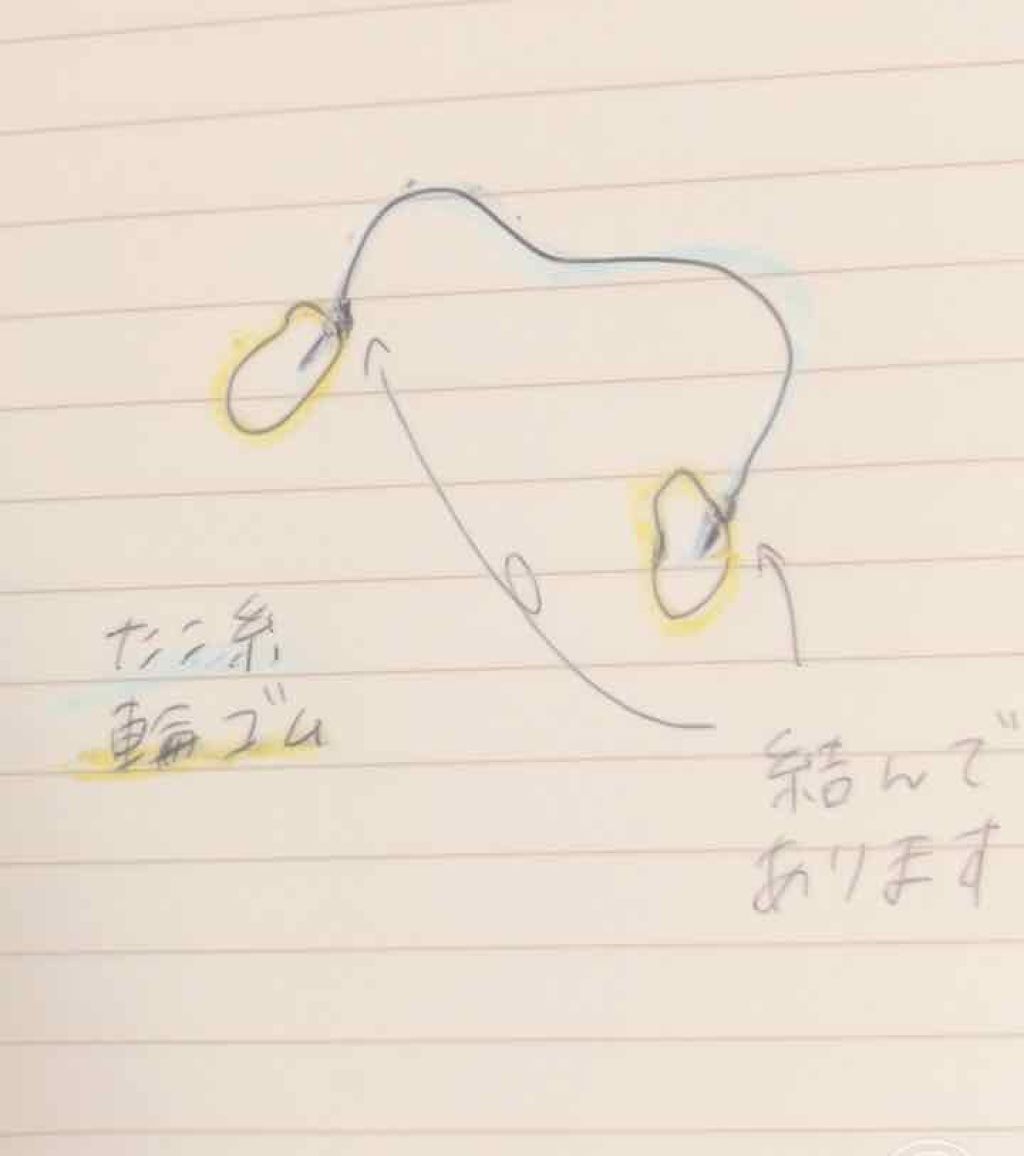 たこ糸
輪ゴム
結んで
あります